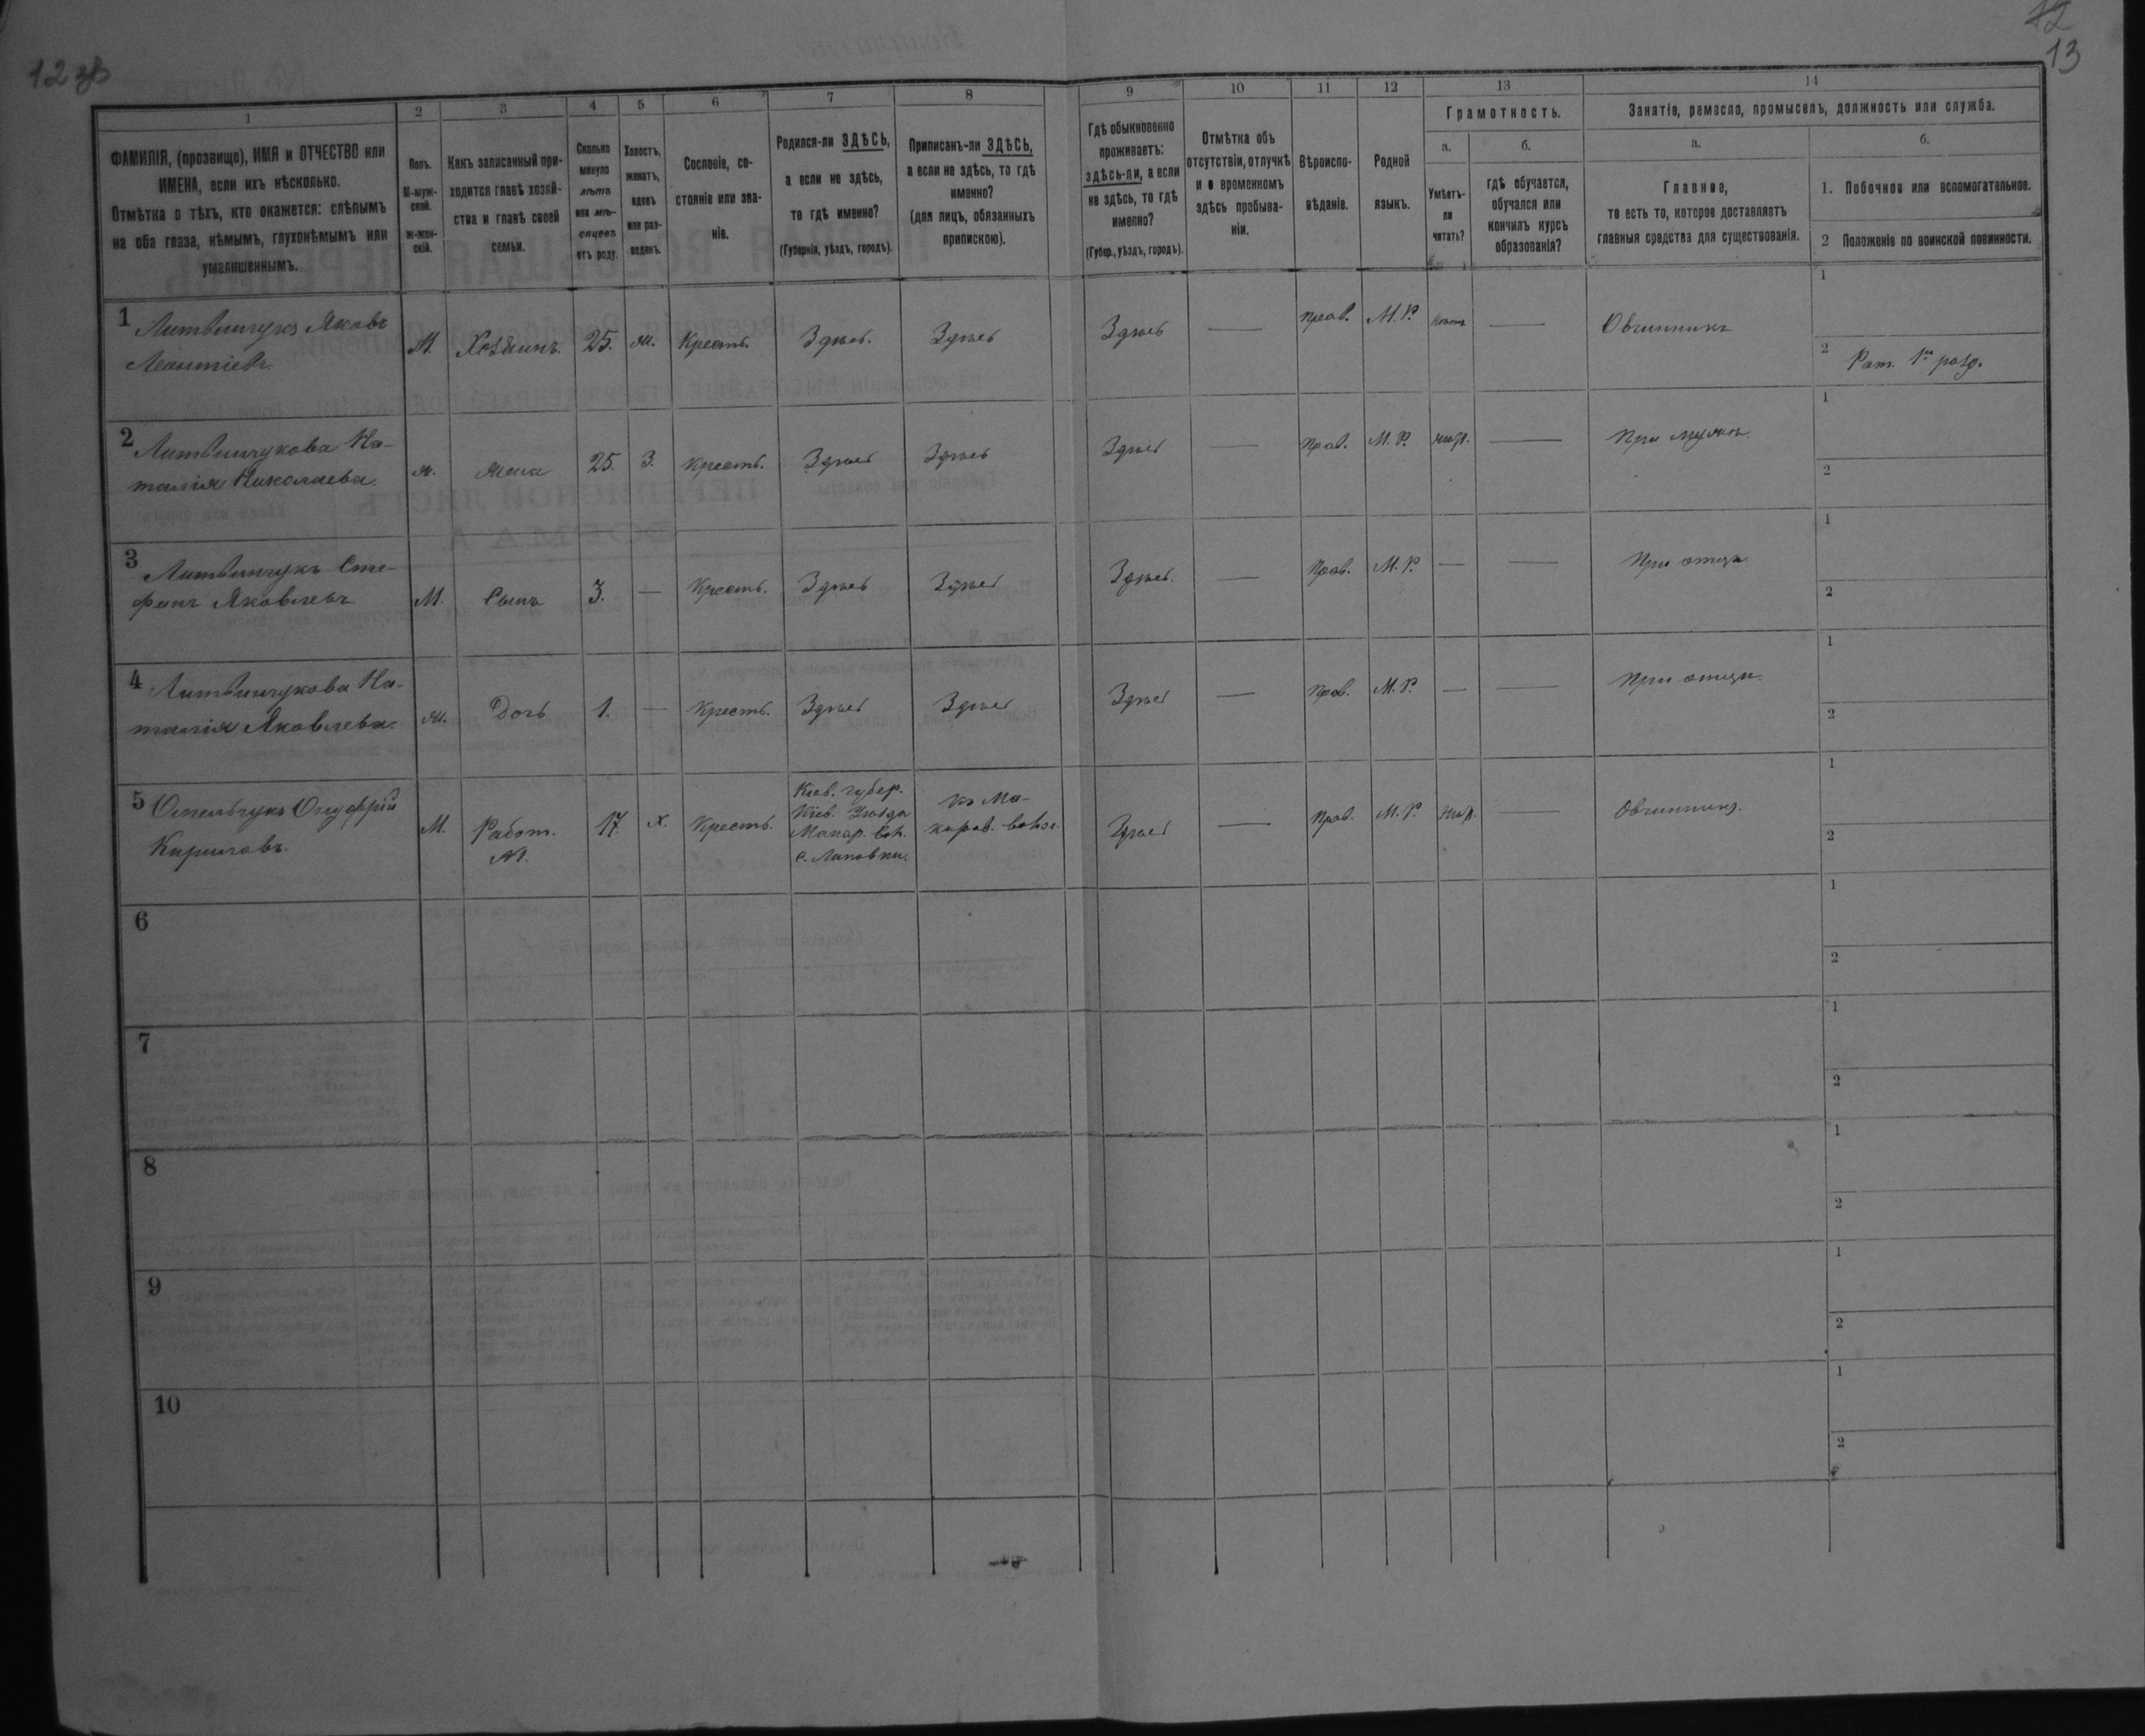 12 зв
12
13
1 2 3 4 5 6 7 8 9 10 11 12 13 14
ФАМИЛІЯ, (прозвище), ИМЯ и ОТЧЕСТВО или
ИМЕНА, если ихъ нѣсколько.
Отмѣтка о тѣхъ, кто окажется: слѣпымъ
на оба глаза, нѣмымъ, глухонѣмымъ или
умалишеннымъ.
Полъ.
М-муж-
ской.
ж-жен-
скій.
Какъ записанный при-
ходится главѣ хозяй-
ства и главѣ своей
семьи.
Сколько
минуло
лѣтъ
или мѣ-
сяцевъ
отъ роду.
Холостъ,
женатъ,
вдовъ
или раз-
веденъ.
Сословіе, со-
стояніе или зва-
ніе.
Родился-ли ЗДѢСЬ,
а если не здѣсь,
то гдѣ именно?
(Губернія, уѣздъ, городъ).
Приписанъ-ли ЗДѢСЬ,
а если не здѣсь, то гдѣ
именно?
(для лицъ, обязанныхъ
припискою).
Гдѣ обыкновенно
проживаетъ:
здѣсь-ли, а если
не здѣсь, то гдѣ
именно?
(Губер., уѣздъ, городъ).
Отмѣтка объ
отсутствіи, отлучкѣ
и о временномъ
здѣсь пребыва-
ніи.
Вѣроиспо-
вѣданіе.
Родной
языкъ.
Грамотность.
а.
Умѣетъ-
ли
читать?
б.
гдѣ обучается,
обучался или
кончилъ курсъ
образованія?
Занятія, ремесло, промыселъ, должность или служба.
а.
Главное,
то есть то, которое доставляетъ
главныя средства для существованія.
б.
1. Побочное или вспомогательное.
2 Положеніе по воинской повинности.
1 Литвинчукъ Яковъ
Леонтіевъ.
М. Хозяинъ. 25. ж. Крест. Здѣсь. Здѣсь Здѣсь — Прав. М. Р. — Овчинникъ
1
2 Рат. 1го разр.
2 Литвинчукова На-
талія Николаева.
ж. жена 25. З. Крест. Здѣсь Здѣсь Здѣсь — Прав. М. Р. — При мужѣ
1
2
3 Литвинчукъ Сте-
фанъ Яковлевъ
М. Сынъ 3. — Крест. Здѣсь Здѣсь Здѣсь. — Прав. М. Р. — — При отцѣ
1
2
4 Литвинчукова На-
талія Яковлева.
ж. Дочь 1. — Крест. Здѣсь Здѣсь Здѣсь — Прав. М. Р. — — При отцѣ.
1
2
5 Омельчукъ Онуфрій
Кириловъ.
М. Работ. 17. х. Крест.
М.
Кіев. губер.
Кіев. Уѣзда
Макар. вол.
с. Липовки.
къ Ма-
каров. волос.
Здѣсь — Прав. М. Р. — Овчинник.
1
2
6
1
2
7
1
2
8
1
2
9
1
2
10
1
2